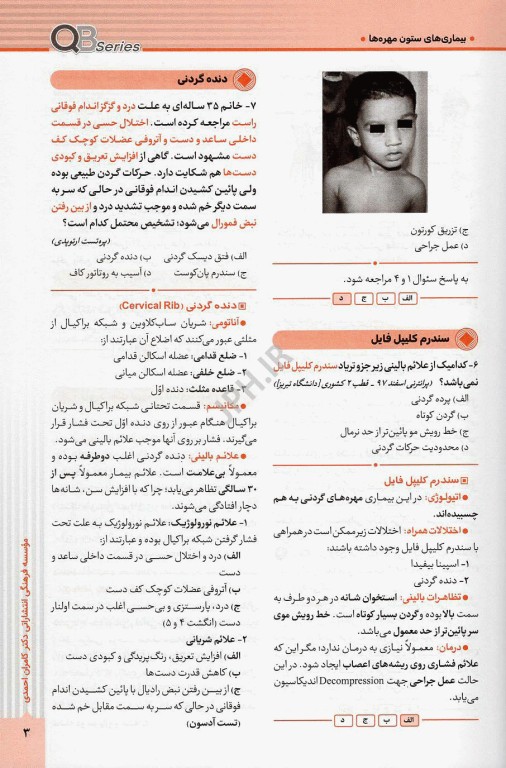 بیماری‌های ستون مهره‌ها
QB Series
ج) تزریق کورتون
د) عمل جراحی
به پاسخ سئوال ۱ و ۴ مراجعه شود.
الف ب ج د
سندرم کلیپل فایل
۶- کدامیک از علائم بالینی زیر جزو تریاد سندرم کلیپل فایل
نمی‌باشد؟ (پرانترنی اسفند ۹۷ - قطب ۲ کشوری [دانشگاه تبریز])
الف) پرده گردنی
ب) گردن کوتاه
ج) خط رویش مو پائین‌تر از حد نرمال
د) محدودیت حرکات گردنی
سندرم کلیپل فایل
اتیولوژی: در این بیماری مهره‌های گردنی به هم
چسبیده‌اند.
اختلالات همراه: اختلالات زیر ممکن است در همراهی
با سندرم کلیپل فایل وجود داشته باشند:
۱- اسپینا بیفیدا
۲- دنده گردنی
تظاهرات بالینی: استخوان شانه در هر دو طرف به
سمت بالا بوده و گردن بسیار کوتاه است. خط رویش موی
سر پائین‌تر از حد معمول می‌باشد.
درمان: معمولاً نیازی به درمان ندارد؛ مگر این که
علائم فشاری روی ریشه‌های اعصاب ایجاد شود. در این
حالت عمل جراحی جهت Decompression اندیکاسیون
می‌یابد.
الف ب ج د
دنده گردنی
۷- خانم ۳۵ ساله‌ای به علت درد و گزگز اندام فوقانی
راست مراجعه کرده است. اختلال حسی در قسمت
داخلی ساعد و دست و آتروفی عضلات کوچک کف
دست مشهود است. گاهی از افزایش تعریق و کبودی
دست‌ها هم شکایت دارد. حرکات گردن طبیعی بوده
ولی پائین کشیدن اندام فوقانی در حالی که سر به
سمت دیگر خم شده و موجب تشدید درد و از بین رفتن
نبض فمورال می‌شود؛ تشخیص محتمل کدام است؟
(پروتست ارتوپدی)
الف) فتق دیسک گردنی ب) دنده گردنی
ج) سندرم پان‌کوست د) آسیب به روتاتور کاف
دنده گردنی (Cervical Rib)
آناتومی: شریان ساب‌کلاوین و شبکه براکیال از
مثلثی عبور می‌کنند که اضلاع آن عبارتند از:
۱- ضلع قدامی: عضله اسکالن قدامی
۲- ضلع خلفی: عضله اسکالن میانی
۳- قاعده مثلث: دنده اوّل
مکانیسم: قسمت تحتانی شبکه براکیال و شریان
براکیال هنگام عبور از روی دنده اوّل تحت فشار قرار
می‌گیرند. فشار بر روی آنها موجب علائم بالینی می‌شود.
علائم بالینی: دنده گردنی اغلب دوطرفه بوده و
معمولاً بی‌علامت است. علائم بیمار معمولاً پس از
۳۰ سالگی تظاهر می‌یابد؛ چرا که با افزایش سن، شانه‌ها
دچار افتادگی می‌شوند.
۱- علائم نورولوژیک: علائم نورولوژیک به علت تحت
فشار گرفتن شبکه براکیال بوده و عبارتند از:
الف) درد و اختلال حسی در قسمت داخلی ساعد و
دست
ب) آتروفی عضلات کوچک کف دست
ج) درد، پارستزی و بی‌حسی اغلب در سمت اولنار
دست (انگشت ۴ و ۵)
۲- علائم شریانی
الف) افزایش تعریق، رنگ‌پریدگی و کبودی دست
ب) کاهش قدرت دست‌ها
ج) از بین رفتن نبض رادیال با پائین کشیدن اندام
فوقانی در حالی که سر به سمت مقابل خم شده
(تست آدسون)
مؤسسه فرهنگی انتشاراتی دکتر کامران احمدی
۳
JPH.IR